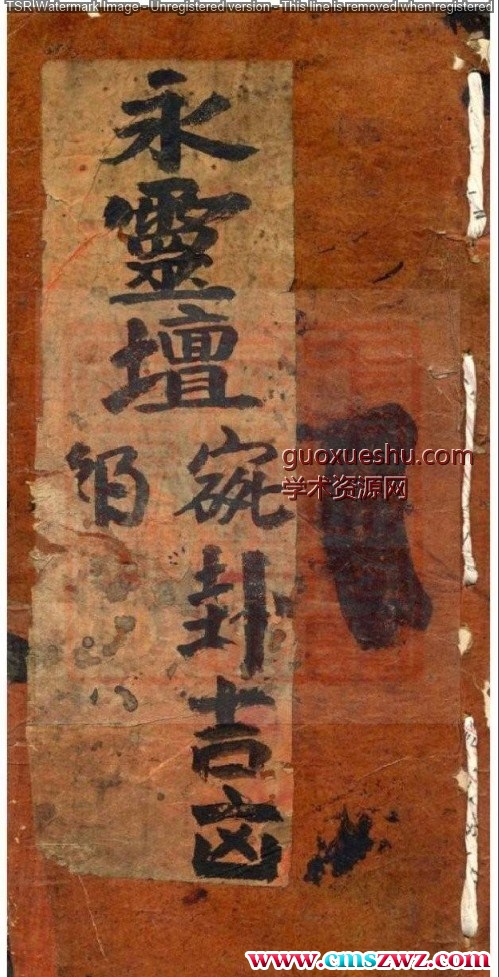 TSR Watermark Image - Unregistered version - This line is removed when registered
永靈壇
卦吉㐫
guoxueshu.com
学术资源网
www.cmszwz.com